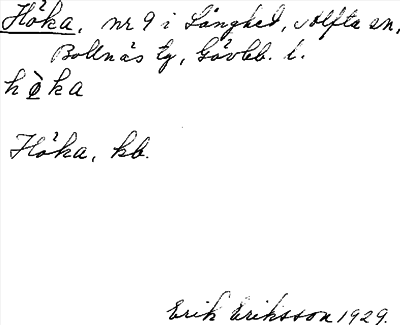 Höka, nr 9 i Långhed, Alfta sn,
Bollnäs tg, Gävleb. l.
hö̀ka
Höka, kb.
Erik Eriksson 1929.